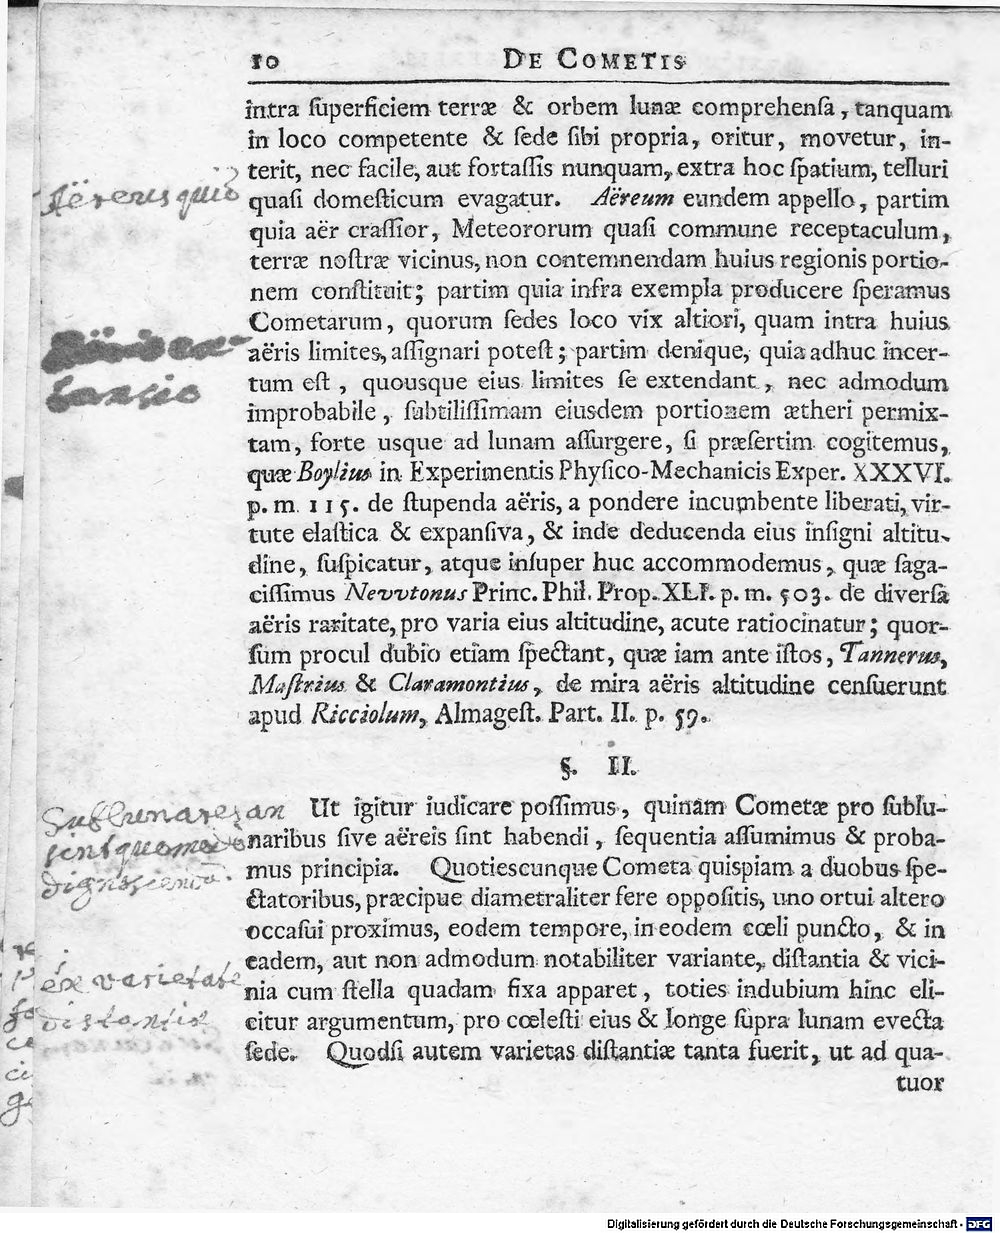 10 DE COMETIS
intra ſuperficiem terræ & orbem lunæ comprehenſa, tanquam
in loco competente & ſede ſibi propria, oritur, movetur, in-
terit, nec facile, aut fortaſſis nunquam, extra hoc ſpatium, telluri
quaſi domeſticum evagatur. Aëreum eundem appello, partim
quia aër craſſior, Meteororum quaſi commune receptaculum,
terræ noſtræ vicinus, non contemnendam huius regionis portio-
nem conſtituit; partim quia infra exempla producere ſperamus
Cometarum, quorum ſedes loco vix altiori, quam intra huius
aëris limites, aſſignari poteſt; partim denique, quia adhuc incer-
tum eſt, quousque eius limites ſe extendant, nec admodum
improbabile, ſubtiliſſimam eiusdem portionem ætheri permix-
tam, forte usque ad lunam aſſurgere, ſi præſertim cogitemus,
quæ Boylius in Experimentis Phyſico-Mechanicis Exper. XXXVI.
p. m. 115. de ſtupenda aëris, a pondere incumbente liberati, vir-
tute elaſtica & expanſiva, & inde deducenda eius inſigni altitu-
dine, ſuſpicatur, atque inſuper huc accommodemus, quæ ſaga-
ciſſimus Nevvtonus Princ. Phil. Prop. XLI. p. m. 503. de diverſa
aëris raritate, pro varia eius altitudine, acute ratiocinatur; quor-
ſum procul dubio etiam ſpectant, quæ iam ante iſtos, Tannerus,
Maſtrius & Claramontius, de mira aëris altitudine cenſuerunt
apud Ricciolum, Almageſt. Part. II. p. 59.
§. II.
Ut igitur iudicare poſſimus, quinam Cometæ pro ſublu-
naribus ſive aëreis ſint habendi, ſequentia aſſumimus & proba-
mus principia. Quotiescunque Cometa quispiam a duobus ſpe-
ctatoribus, præcipue diametraliter fere oppoſitis, uno ortui altero
occaſui proximus, eodem tempore, in eodem cœli puncto, & in
eadem, aut non admodum notabiliter variante, diſtantia & vici-
nia cum ſtella quadam fixa apparet, toties indubium hinc eli-
citur argumentum, pro cœleſti eius & longe ſupra lunam evecta
ſede. Quodſi autem varietas diſtantiæ tanta fuerit, ut ad qua-
tuor
Aëreus quis
Sublunares an
sint quomodo
ex varietate
distantiæ
Digitalisierung gefördert durch die Deutsche Forschungsgemeinschaft - DFG